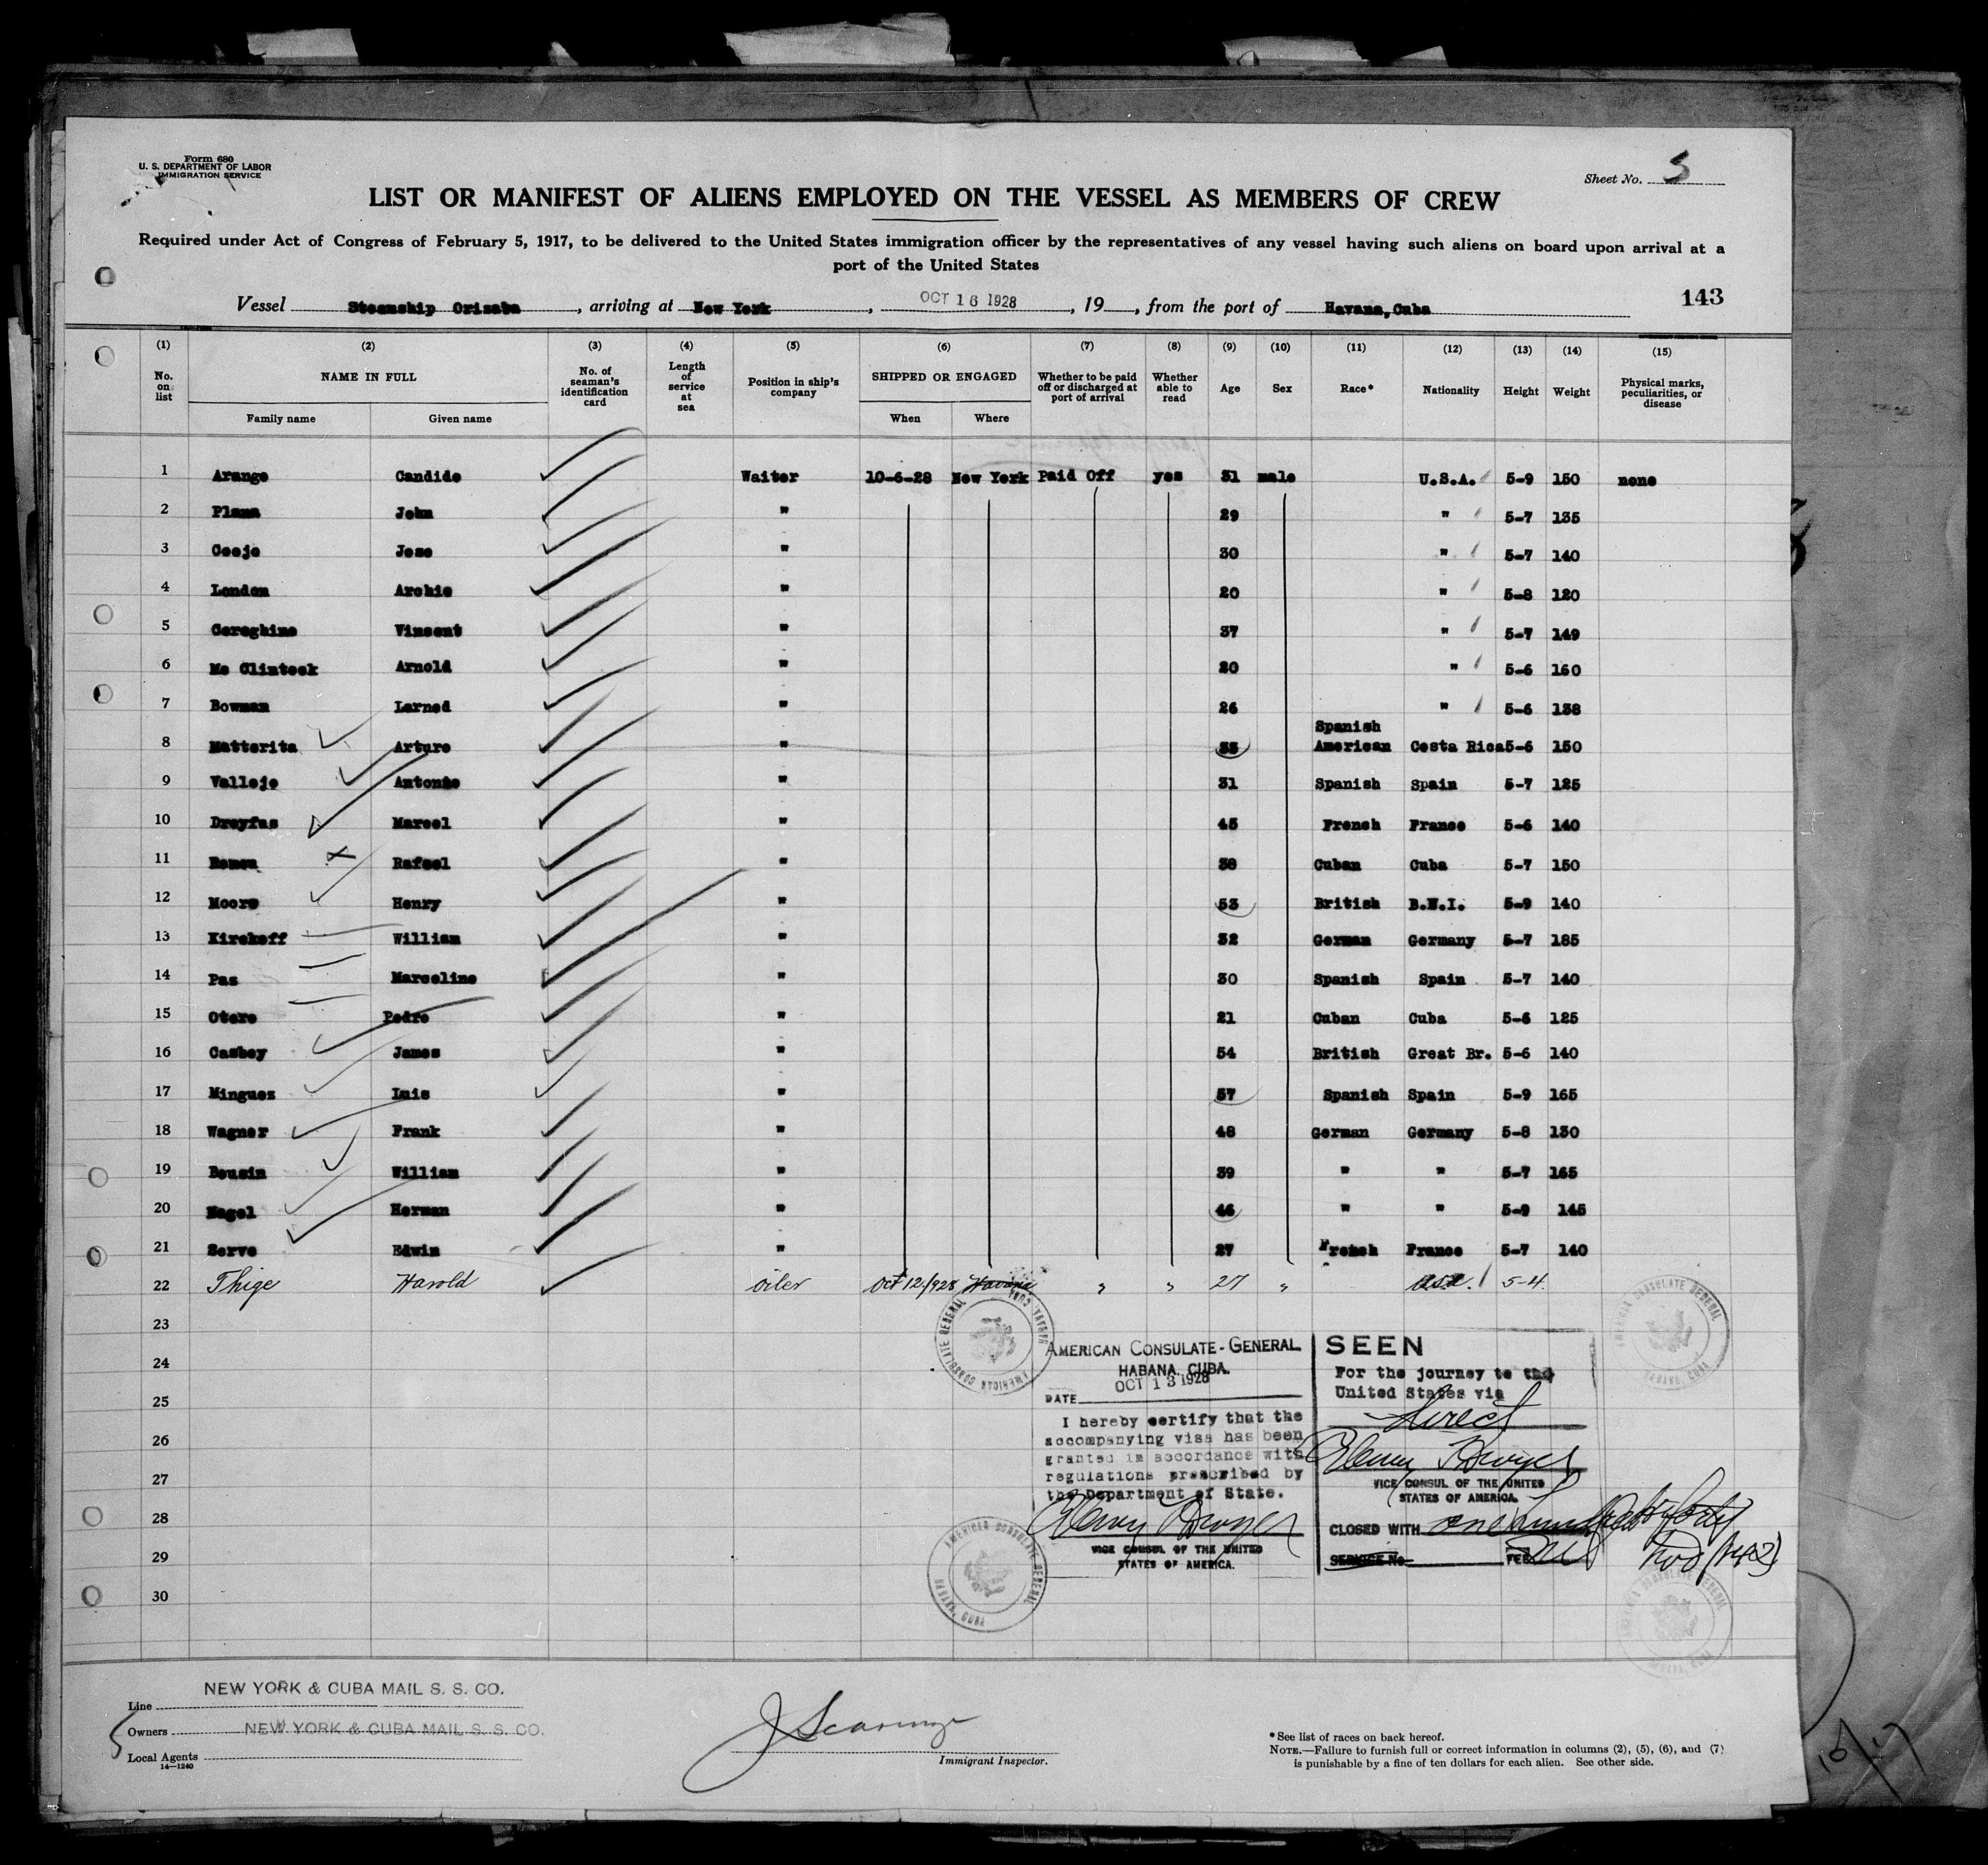 Form 680
U. S. DEPARTMENT OF LABOR
IMMIGRATION SERVICE
Sheet No. 5
LIST OR MANIFEST OF ALIENS EMPLOYED ON THE VESSEL AS MEMBERS OF CREW
Required under Act of Congress of February 5, 1917, to be delivered to the United States immigration officer by the representatives of any vessel having such aliens on board upon arrival at a
port of the United States
Vessel Steamship Orizaba, arriving at New York, OCT 16 1928, 19, from the port of Havana, Cuba 143
(1) (2) (3) (4) (5) (6) (7) (8) (9) (10) (11) (12) (13) (14) (15)
No. on list NAME IN FULL Family name Given name No. of seaman's identification card Length of service at sea Position in ship's company SHIPPED OR ENGAGED When Where Whether to be paid off or discharged at port of arrival Whether able to read Age Sex Race* Nationality Height Weight Physical marks, peculiarities, or disease
1 Arango Candido Waiter 10-6-28 New York Paid Off yes 31 male U.S.A. 5-9 150 none
2 Plana John " 29 " 5-7 135
3 Ceejo Jose " 30 " 5-7 140
4 London Archie " 20 " 5-8 120
5 Cereghino Vincent " 37 " 5-7 149
6 Mc Clintock Arnold " 20 " 5-6 160
7 Bowman Larned " 26 " 5-6 138
8 Matterita Arturo " 33 Spanish American Costa Rica 5-6 150
9 Vallejo Antonio " 31 Spanish Spain 5-7 125
10 Dreyfus Marcel " 45 French France 5-6 140
11 Rafael " 38 Cuban Cuba 5-7 150
12 Moore Henry " 53 British B.W.I. 5-9 140
13 Kirckoff William " 32 German Germany 5-7 185
14 Pas Marceline " 30 Spanish Spain 5-7 140
15 Otero Pedro " 21 Cuban Cuba 5-6 125
16 Casbey James " 54 British Great Br. 5-6 140
17 Minguez Luis " 57 Spanish Spain 5-9 165
18 Wagner Frank " 48 German Germany 5-8 130
19 Bousin William " 39 " " 5-7 165
20 Nagel Herman " 46 " " 5-9 145
21 Serve Edwin " 27 French France 5-7 140
22 Thige Harold oiler Oct 12/928 Havana " " 27 " USA. 5-4.
23
24
25
26
27
28
29
30
AMERICAN CONSULATE-GENERAL
HABANA, CUBA.
OCT 13 1928
DATE
I hereby certify that the
accompanying visa has been
granted in accordance with
regulations prescribed by
the Department of State.
Henry T Dwyer
VICE CONSUL OF THE UNITED
STATES OF AMERICA.
SEEN
For the journey to the
United States via
direct
Henry T Dwyer
VICE CONSUL OF THE UNITED
STATES OF AMERICA.
CLOSED WITH one hundred forty
two (142)
SERVICE No FEE
AMERICAN CONSULATE GENERAL HABANA, CUBA
AMERICAN CONSULATE GENERAL HABANA, CUBA
AMERICAN CONSULATE GENERAL HABANA, CUBA
AMERICAN CONSULATE GENERAL HABANA, CUBA
Line NEW YORK & CUBA MAIL S. S. CO.
Owners NEW YORK & CUBA MAIL S. S. CO.
Local Agents
14—1240
Immigrant Inspector.
*See list of races on back hereof.
NOTE.—Failure to furnish full or correct information in columns (2), (5), (6), and (7)
is punishable by a fine of ten dollars for each alien. See other side.
10/17